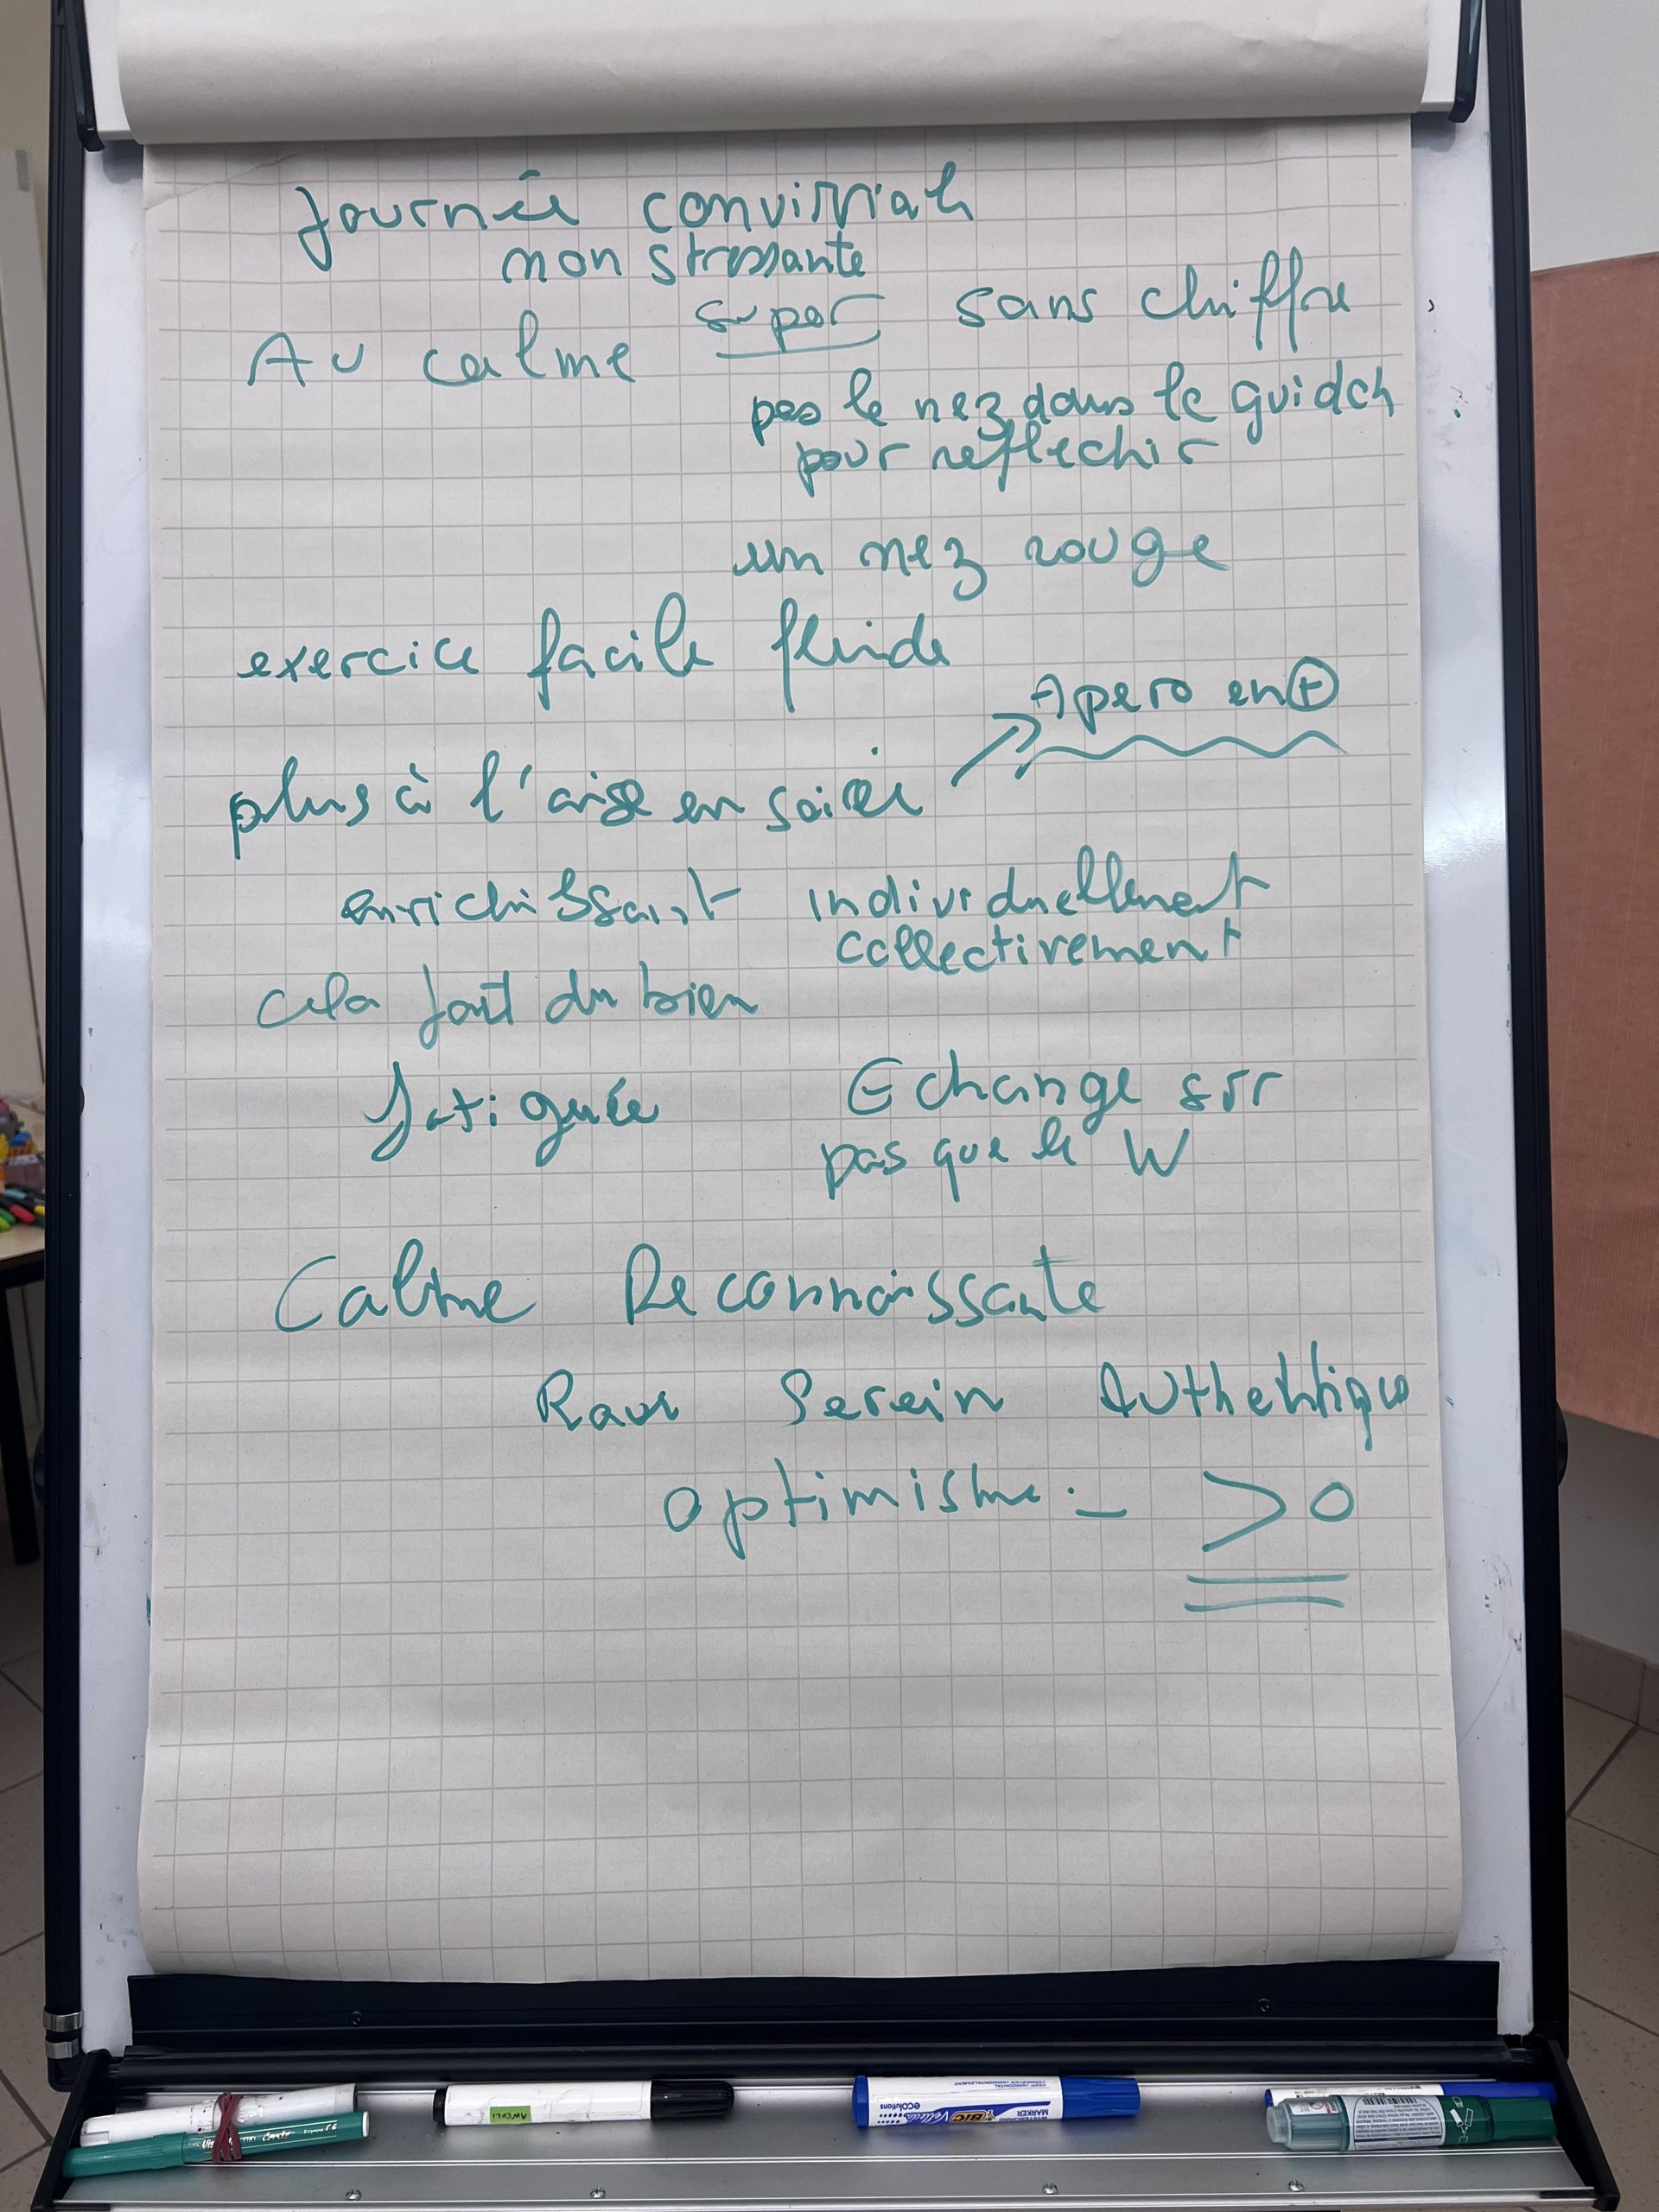 Journée conviviale
non stressante
super sans chiffre
Au calme
pas le nez dans le guidon
pour reflechir
un nez rouge
exercice facile fluide
Apero en +
plus à l'aise en soirée
enrichissant individuellement
collectivement
cela fait du bien
fatiguée Echange sur
pas que le W
Calme Reconnaissante
Ravi Serein Authentique
optimisme :- >0
ANCOLI
BIC Velleda
MARKER
ecolutions